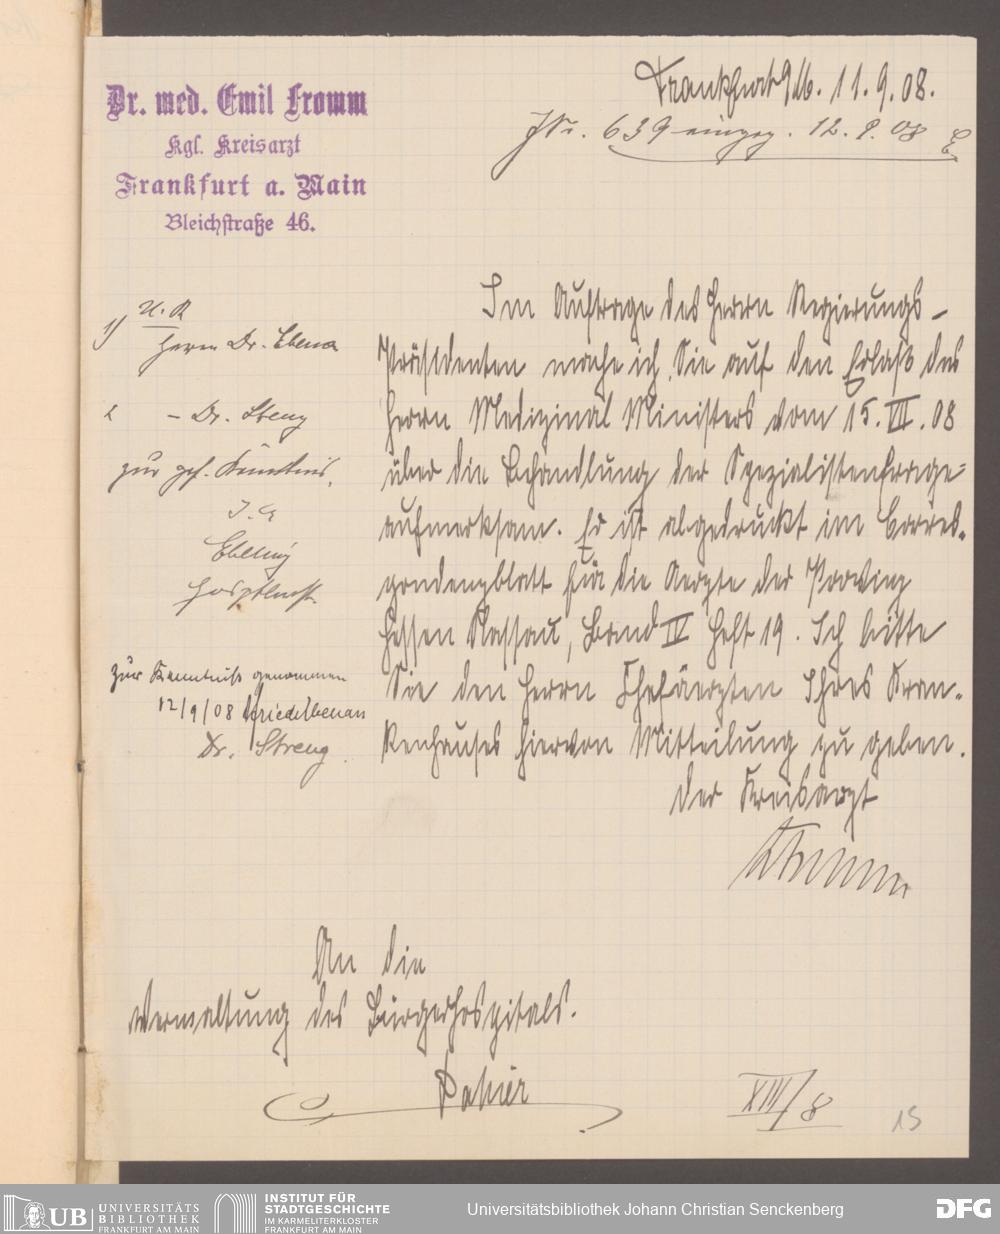 Dr. med. Emil Fromm
Kgl. Kreisarzt
Frankfurt a. Main
Bleichstraße 46.
Frankfurt 11.9.08.
JNr. 639 eingeg. 12.9.08 E
Im Auftrage des Herrn Regierungs-
Präsidenten mache ich Sie auf den Erlaß des
Herrn Medizinal Ministers vom 15. VII. 08
über die Behandlung der Spezialistenfrage
aufmerksam. Er ist abgedruckt im Corres-
pondenzblatt für die Aerzte der Provinz
Hessen Nassau, Band IV Heft 19. Ich bitte
Sie den Herrn Chefärzten Ihres Kran-
kenhauses hiervon Mitteilung zu geben.
Der Kreisarzt
Fromm
1) U. R
Herrn Dr.
2 - Dr. Streng
zur gef. Kenntnis.
J. A
Ebeling
zur Kenntniß genommen
12/9/08
Dr. Streng
An die
Verwaltung des Bürgerhospitals.
Dahier
XIII/8
15
UB UNIVERSITÄTS
BIBLIOTHEK
FRANKFURT AM MAIN
INSTITUT FÜR
STADTGESCHICHTE
IM KARMELITERKLOSTER
FRANKFURT AM MAIN
Universitätsbibliothek Johann Christian Senckenberg
DFG